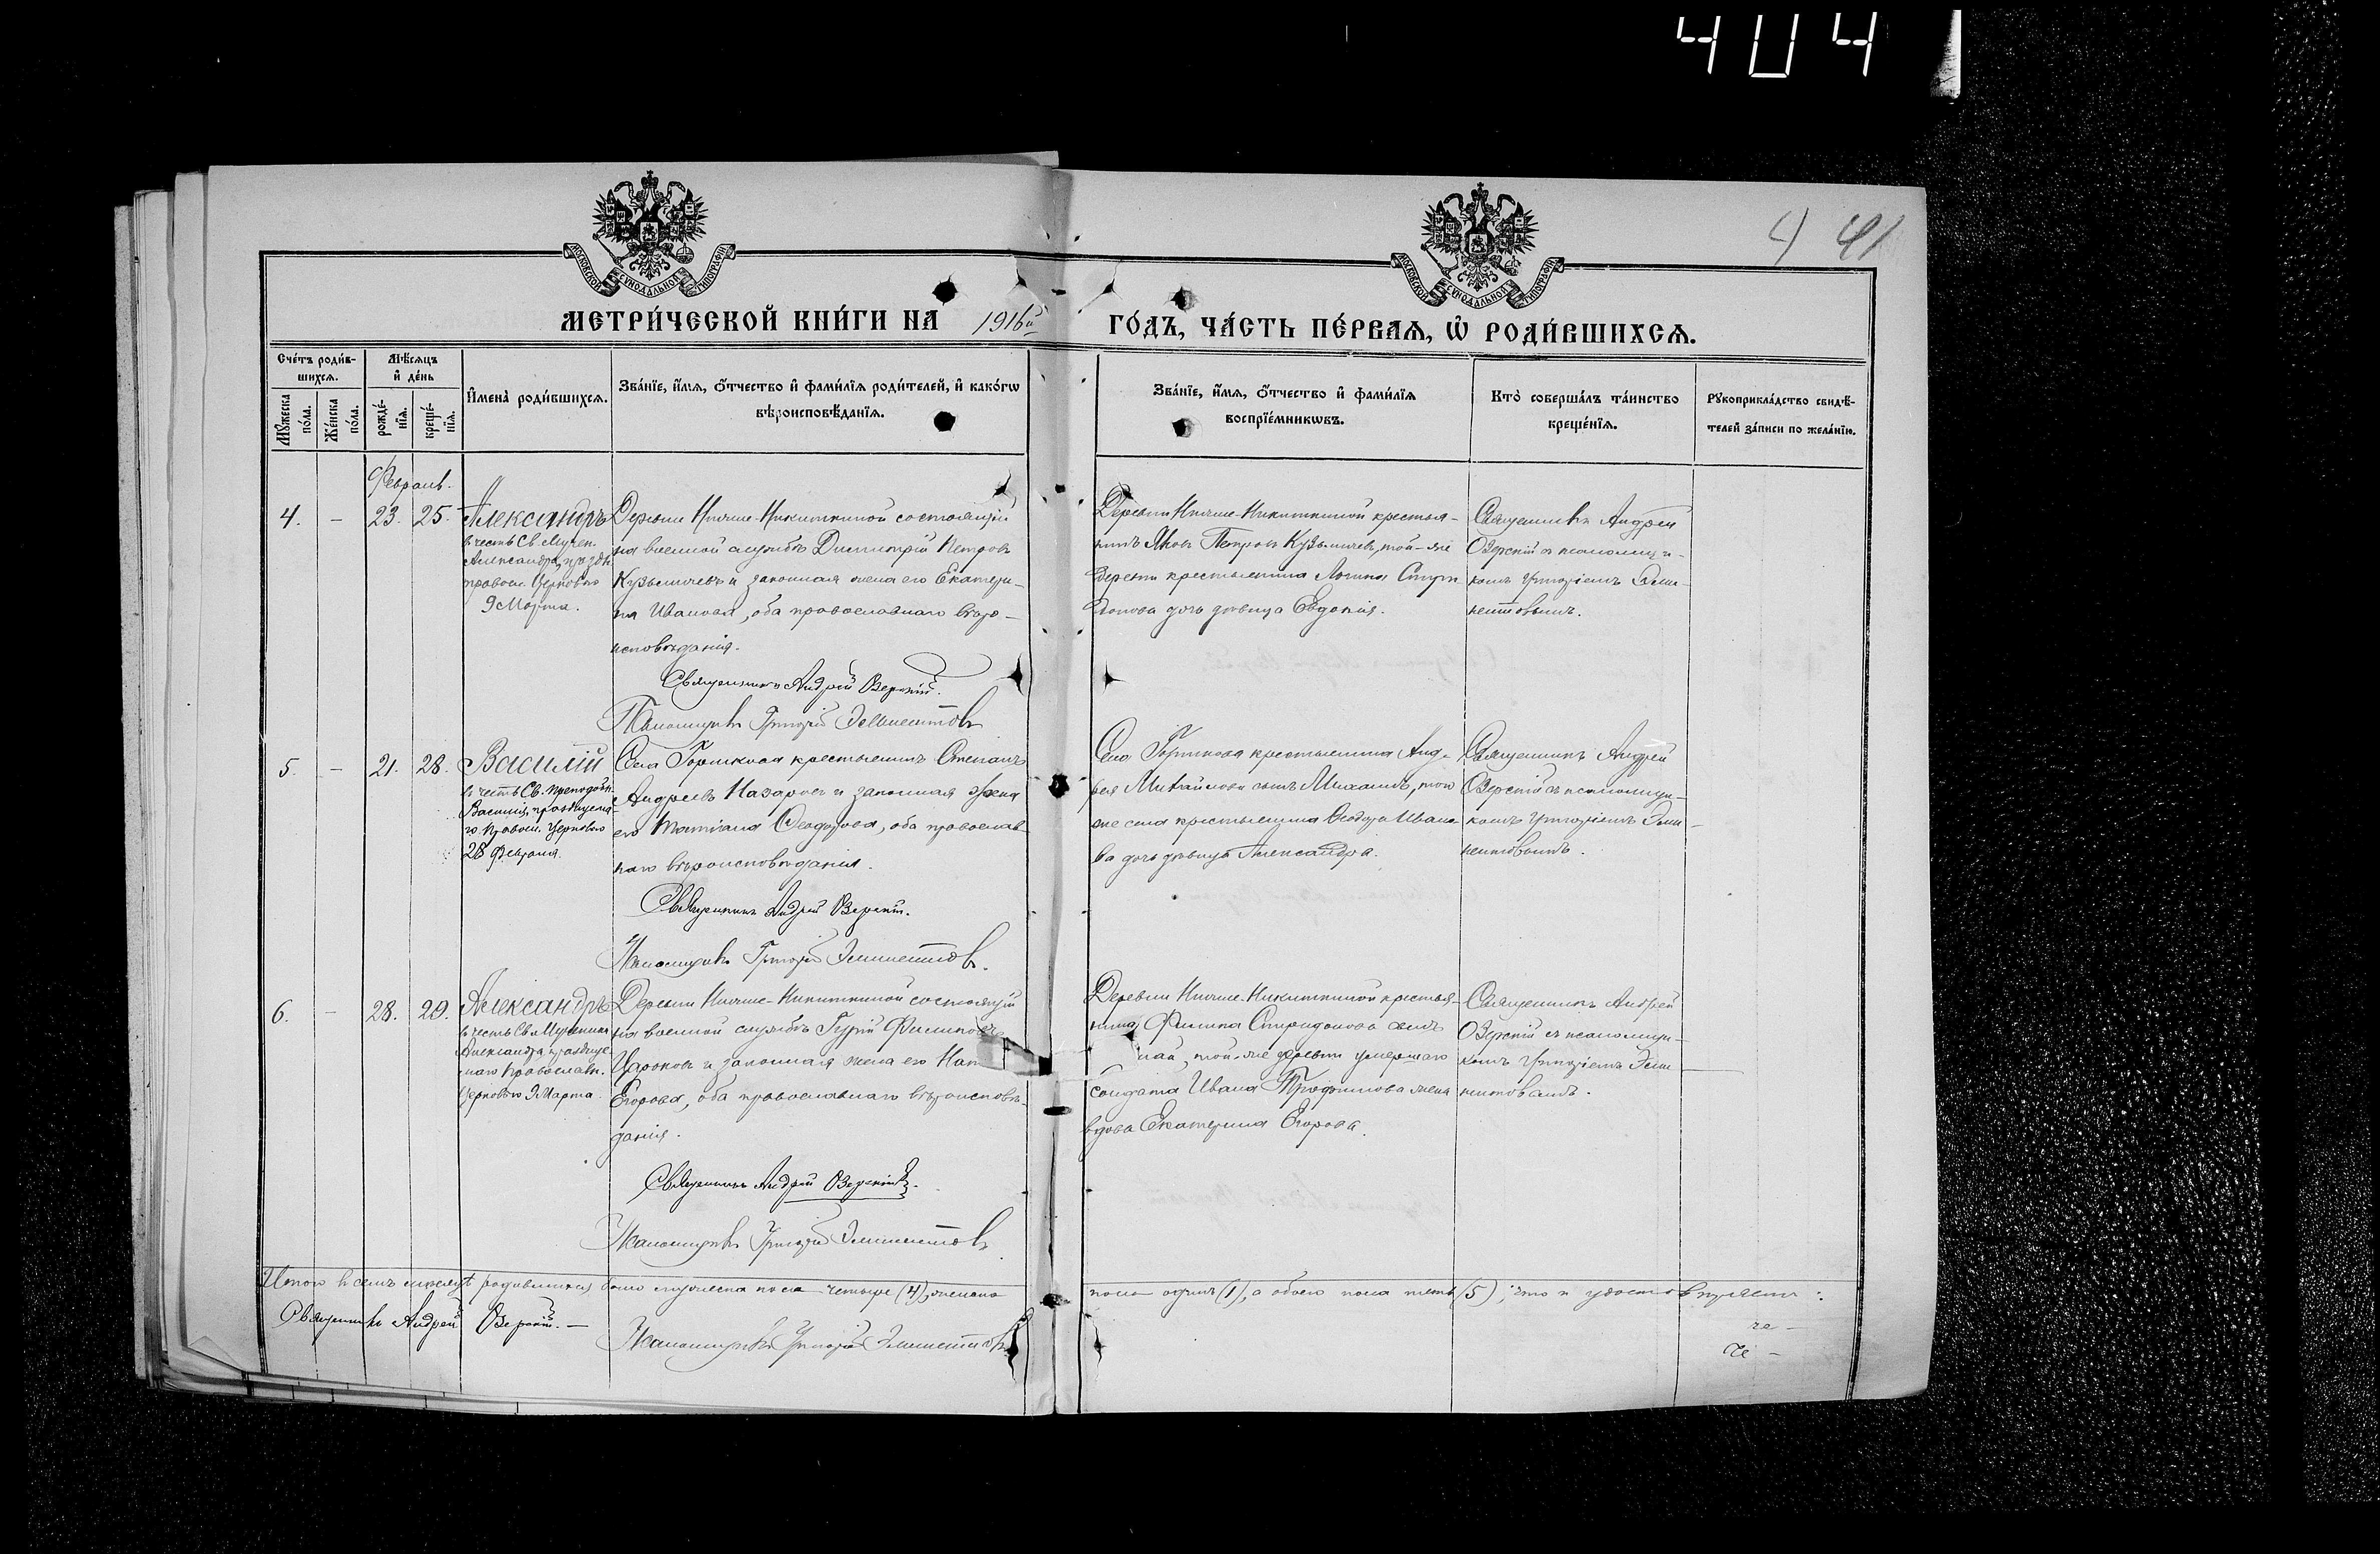 404
4 41
МОСКОВСКОЙ СУНОДАЛЬНОЙ ТИПОГРАФІИ
МОСКОВСКОЙ СУНОДАЛЬНОЙ ТИПОГРАФІИ
МЕТРИ́ЧЕСКОЙ КНИ́ГИ НА 1916й ГО́ДЪ, ЧА́СТЬ ПЕ́РВАѦ, Ѡ҆ РОДИ́ВШИХСѦ.
Сче́тъ роди́в-
шихсѧ.
Мꙋ́жеска по́ла.
Же́нска по́ла.
Мѣ́сѧцъ
и҆ де́нь
рожде́-
нїѧ.
креще́-
нїѧ.
И҆мена̀ роди́вшихсѧ.
Зва́нїе, и҆́мѧ, ѻ҆́тчество и҆ фами́лїѧ роди́телей, и҆ како́гѡ
вѣроисповѣ́данїѧ.
Зва́нїе, и҆́мѧ, ѻ҆́тчество и҆ фами́лїѧ
воспрїе́мникѡвъ.
Кто̀ соверша́лъ та́инство
креще́нїѧ.
Рꙋкоприкла́дство свидѣ́-
телей за́писи по жела́нїю.
Февраль.
4. – 23. 25. Александръ
въ честь Св. Мучен.
Александра, праздн.
правосл. Церковью
9 Марта.
Деревни Нижне-Никиткиной состоящій
на военной службѣ Димитрій Петровъ
Кузьмичевъ и законная жена его Екатери-
на Иванова, оба православнаго вѣро-
исповѣданія.
Священникъ Андрей Озерскій.
Псаломщикъ Григорій
Деревни Нижне-Никиткиной крестья-
нинъ Яковъ Петровъ Кузьмичевъ, той-же
деревни крестьянина Спири-
донова дочь дѣвица Евдокія.
Священникъ Андрей
Озерскій съ псаломщи-
комъ Григоріемъ
5. – 21. 28. Василій
въ честь Св. Преподобн.
Василія, празднуема-
го Правосл. Церковью
28 Февраля.
Села Горшкова крестьянинъ Степанъ
Андреевъ Назаровъ и законная жена
его Татіана Ѳеодорова, оба православ-
наго вѣроисповѣданія.
Священникъ Андрей Озерскій.
Псаломщикъ Григорій
Села Горшкова крестьянина Анд-
рея Михайлова сынъ Михаилъ, того
же села крестьянина Ѳеодора Ивано-
ва дочь дѣвица Александра.
Священникъ Андрей
Озерскій съ псаломщи-
комъ Григоріемъ
6. – 28. 29. Александръ
въ честь Св. Мученика
Александра, праздну-
маго Православн.
Церковью 9 Марта.
Деревни Нижне-Никиткиной состоящій
на военной службѣ Гурій Филипповъ
и законная жена его Нат
Егорова, оба православнаго вѣроисповѣ-
данія.
Священникъ Андрей Озерскій.
Псаломщикъ Григорій
Деревни Нижне-Никиткиной крестья-
нина Филиппа Спиридонова сынъ
лай, той-же деревни умершаго
солдата Ивана Трофимова жена
вдова Екатерина Егорова.
Священникъ Андрей
Озерскій съ псаломщи-
комъ Григоріемъ
Итого въ семъ мѣсяцѣ родившихся было мужеска пола четыре (4), женска пола одинъ (1), а обоего пола пять (5); что и удостовѣряемъ:
Священникъ Андрей Озерскій. –
Псаломщикъ Григорій